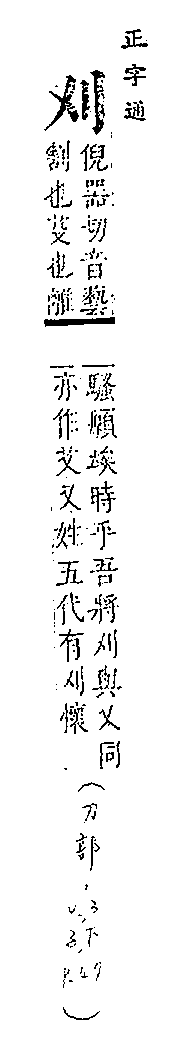 正字通
刈
倪器切音藝
割也芟也離
騷願竢時乎吾將刈與乂同
亦作艾又姓五代有刈懷
(刀部,